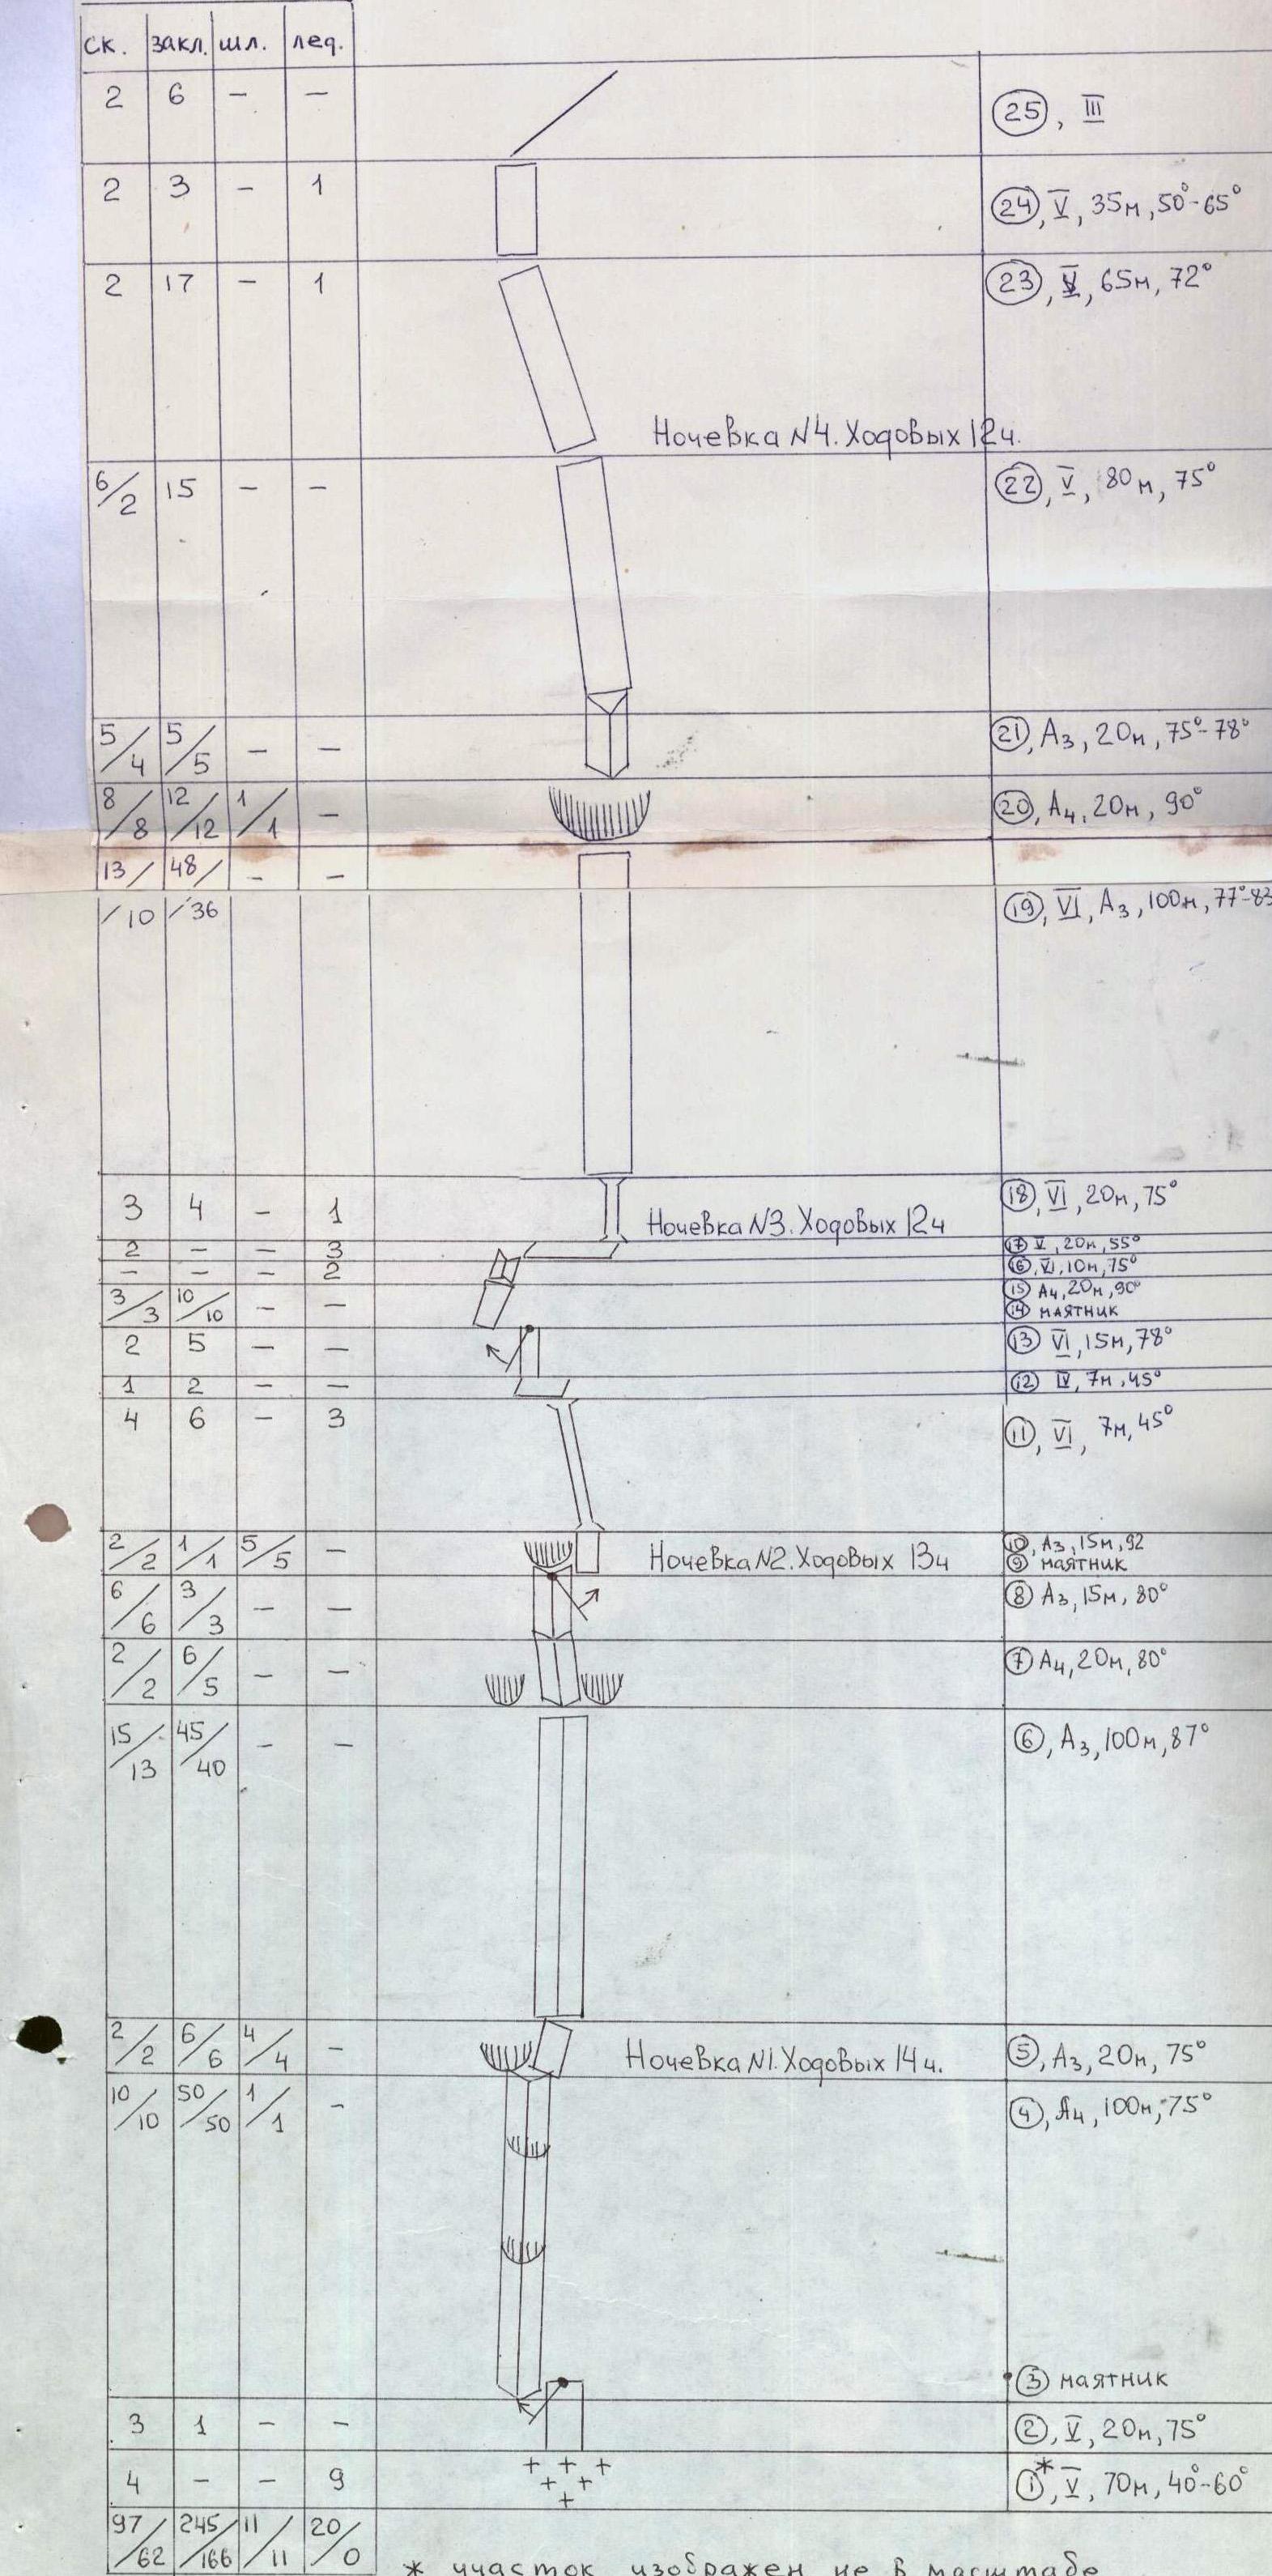 ск. закл. шл. лед.
2 6 – – 25, III
2 3 – 1 24, V, 35м, 50°-65°
2 17 – 1 23, V, 65м, 72°
Ночевка N4. Ходовых 12ч.
6/2 15 – – 22, V, 80м, 75°
5/4 5/5 – – 21, А3, 20м, 75°-78°
8/8 12/12 1/1 – 20, А4, 20м, 90°
13/ 48/ – –
/10 /36 19, VI, А3, 100м, 77°-83
3 4 – 1 18, VI, 20м, 75°
Ночевка N3. Ходовых 12ч
2 – – 3 17 V, 20м, 55°
– – – 2 16, VI, 10м, 75°
3/3 10/10 – – 15 А4, 20м, 90°
14 маятник
2 5 – – 13 VI, 15м, 78°
1 2 – – 12 IV, 7м, 45°
4 6 – 3 11, VI, 7м, 45°
2/2 1/1 5/5 – Ночевка N2. Ходовых 13ч 10, А3, 15м, 92
9 маятник
6/6 3/3 – – 8 А3, 15м, 80°
2/2 6/5 – – 7 А4, 20м, 80°
15/13 45/40 – – 6, А3, 100м, 87°
2/2 6/6 4/4 – Ночевка N1. Ходовых 14ч. 5, А3, 20м, 75°
10/10 50/50 1/1 – 4, А4, 100м, 75°
3 маятник
3 1 – – 2, V, 20м, 75°
4 – – 9 1*, V, 70м, 40°-60°
97/62 245/166 11/11 20/0
* участок изображен не в масштабе